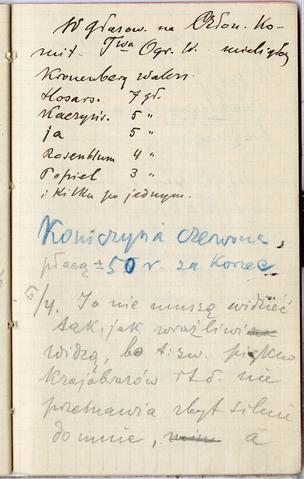 W głosow. na Człon. Ko-
mit. Twa Ogr. W. mieli głosy
Kronenberg
Hosars. 7 gł.
Kaczyńs. 5 "
ja 5 "
Rosenblum 4 "
Popiel 3 "
i kilku po jednym.
Koniczyna czerwona
płacą ± 50 r za korzec
6/4. Ja nie muszę widzieć
tak, jak wrażliwi
widzą, bo t. zw. piękno
krajobrazów itd. nie
przemawia zbyt silnie
do mnie, a